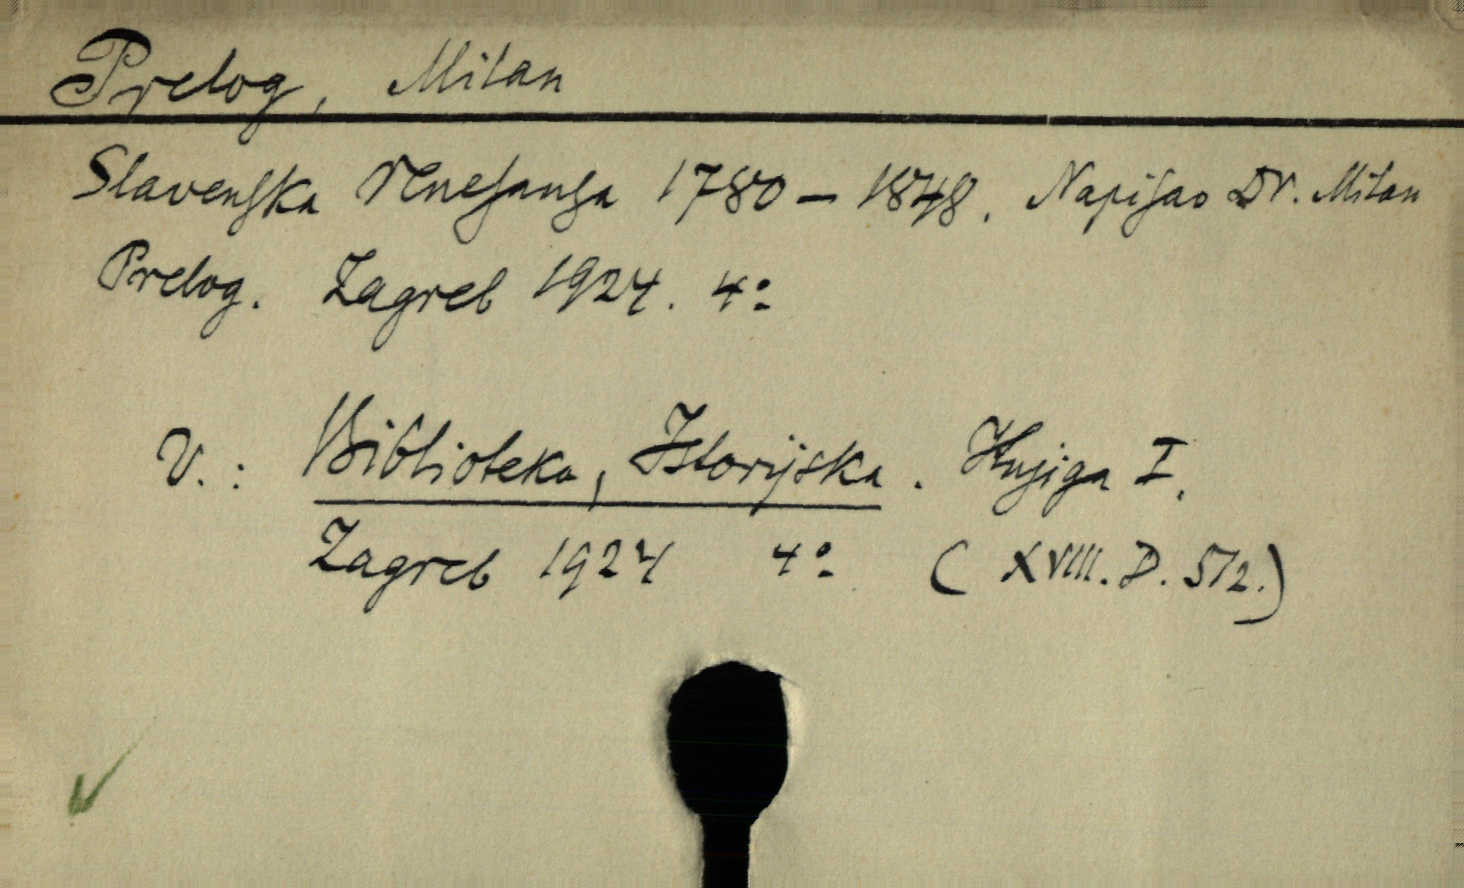 Prelog, Milan
Slavenska renesansa 1780 – 1848. Napisao Dr. Milan
Prelog. Zagreb 1924. 4º
V.: Biblioteka, Istorijska. Knjiga I.
Zagreb 1924 4º (XVIII. D. 512.)